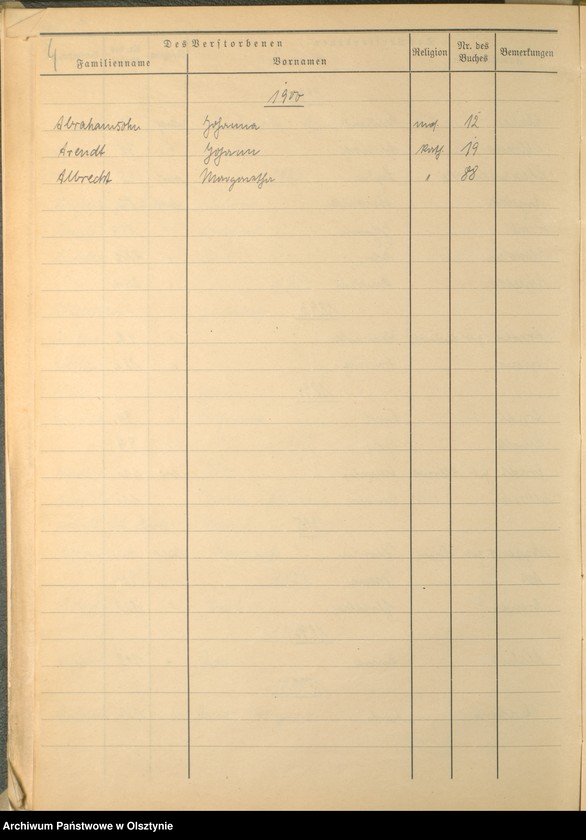 4
Des Verstorbenen
Familienname Vornamen Religion Nr. des Buches Bemerkungen
1900
Abrahamsohn Johanna mos. 12
Arendt Johann Kath. 19
Albrecht Margaretha " 88
Archiwum Państwowe w Olsztynie